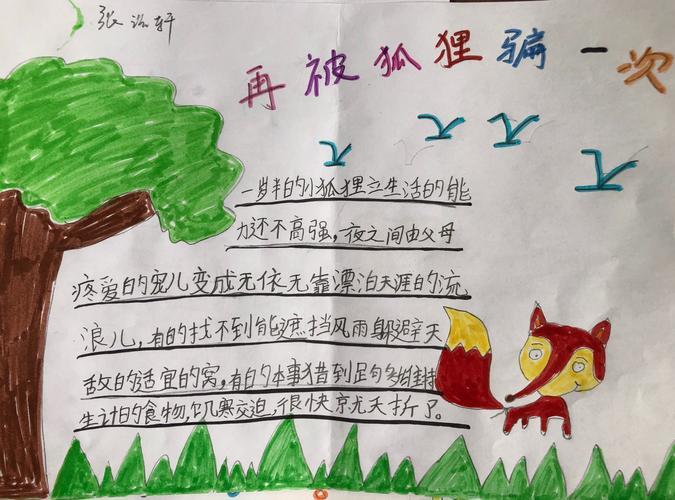 张洺轩
再被狐狸骗一次
一岁半的小狐狸立生活的能
力还不高强，夜之间由父母
疼爱的宠儿变成无依无靠漂泊天涯的流
浪儿，有的找不到能遮挡风雨躲避天
敌的适宜的窝，有的本事猎到足句多维持
生计的食物，饥寒交迫，很快京尤夭折了。